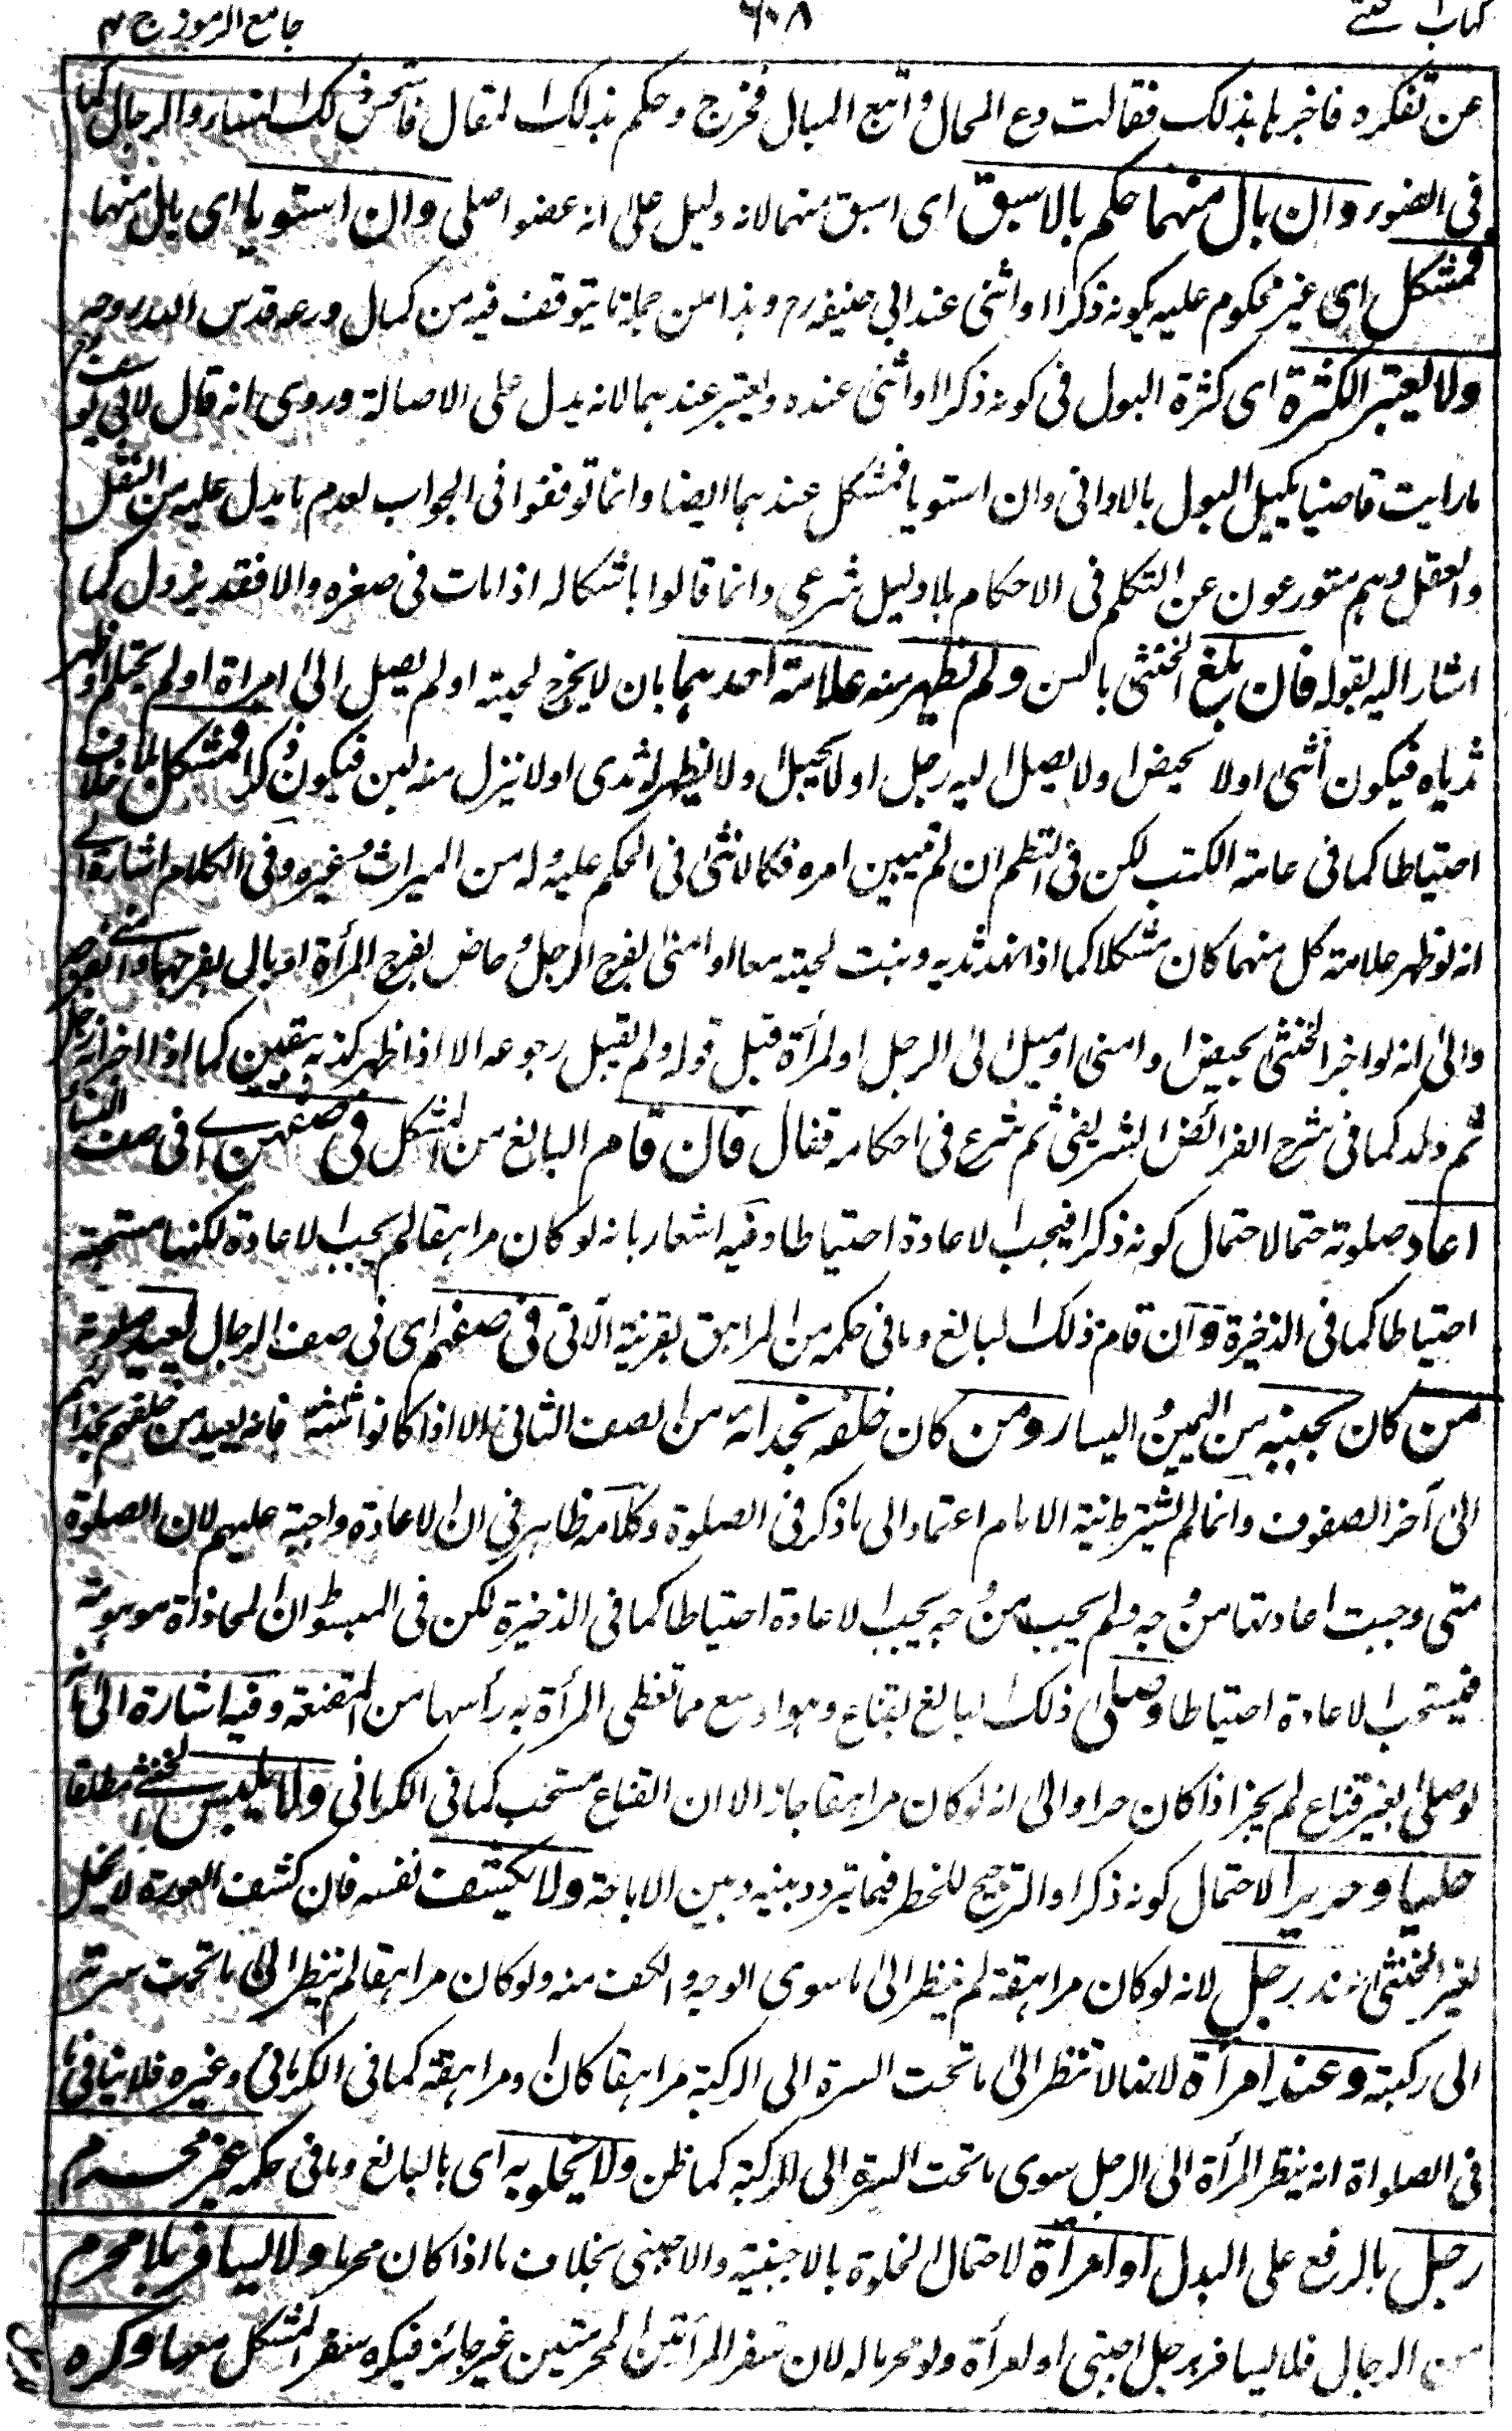 كتاب الخنثى ٦٠٨ جامع الرموز ج ٣
عن تفكره فاخبرها بذلك فقالت دع المحال واتبع المبال فخرج وحكم بذلك المقال فاستحسن ذلك النساء والرجال كما
فى المضمر وان بال منهما حكم بالاسبق اى اسبق منهما لانه دليل على انه عضو اصلى وان استويا اى بال منهما
فمشكل اى غير محكوم عليه بكونه ذكرا او انثى عند ابى حنيفه رح وهذا من جملة ما يتوقف فيه من كمال ورعه قدس الله روحه
ولا يعتبر الكثرة اى كثرة البول فى كونه ذكرا او انثى عنده ويعتبر عندهما لانه يدل على الاصالة وروى انه قال لابى يوسف رح
ما رايت قاضيا يكيل البول بالاوانى وان استويا فمشكل عندهما ايضا وانما توقفوا فى الجواب لعدم ما يدل عليه من النقل
والعقل وهم متورعون عن التكلم فى الاحكام بلا دليل شرعى وانما قالوا باشكاله اذا مات فى صغره والا فقد يزول كما
اشار اليه بقوله فان بلغ الخنثى بالسن ولم يظهر منه علامة احدهما بان لا يخرج لحيته او لم يصل الى امراة او لم يحتلم او ظهر
ثدياه فيكون انثى او لا يحيض او لا يصل اليه رجل او لا يحبل او لا يظهر له ثدى او لا ينزل منه لبن فيكون ذكرا فمشكل
احتياطا كما فى عامة الكتب لكن فى النظم ان لم تبين امره فكالانثى فى الحكم عليه وله من الميراث وغيره وفى الكلام اشارة الى
انه لو ظهر علامة كل منهما كان مشكلا كما اذا نهد ثديه ونبت لحيته معا او امنى بفرج الرجل وحاض بفرج المرأة او بال بفرجها وامنى بفرجه
والى انه لو اخبر الخنثى بحيض او امنى او ميل الى الرجل او المرأة قبل قوله ولم يقبل رجوعه الا اذا ظهر كذبه بيقين كما اذا اخبر انه رجل
ثم ولد كما فى شرح الفرائض الشريفى ثم شرع فى احكامه فقال فان قام البالغ من المشكل فى صفهن اى فى صف النساء
اعاد صلوته حتما لاحتمال كونه ذكرا فيجب الاعادة احتياطا وفيه اشعار بانه لو كان مراهقا لم يجب الاعادة لكنها مستحبة
احتياطا كما فى الذخيرة وان قام ذلك البالغ وما فى حكمه من المراهق بقرينة الآتى فى صفهم اى فى صف الرجال يعيد صلوته
من كان بجنبيه من اليمين واليسار ومن كان خلفه بحذائه من الصف الثانى الا اذا كانوا ثلثة فانه يعيد من خلفهم بحذائهم
الى آخر الصفوف وانما لم يشترط نية الامام اعتمادا الى ما ذكر فى الصلوة وكلامه ظاهر فى ان الاعادة واجبة عليهم لان الصلوة
متى وجبت اعادتها من وجه ولم يجب من وجه يجب الاعادة احتياطا كما فى الذخيرة لكن فى المبسوط ان المحاذاة موهومة
فيستحب الاعادة احتياطا وصلى ذلك البالغ بقناع وهو اوسع مما تغطى المرأة به رأسها من المقنعة وفيه اشارة الى انه
لو صلى بغير قناع لم يجز اذا كان حرا والى انه لو كان مراهقا جاز الا ان القناع مستحب كما فى الكرمانى ولا يلبس الخنثى مطلقا
حليا وحريرا لاحتمال كونه ذكرا والترجيح للحظر فيما تردد بينه وبين الاباحة ولا يكشف نفسه فان كشف العورة لا يحل
لغير الخنثى عند رجل لانه لو كان مراهقة لم ينظر الى ما سوى الوجه والكف منه ولو كان مراهقا لم ينظر الى ما تحت سرته
الى ركبته وعند امرأة لانها لا تنظر الى ما تحت السرة الى الركبة مراهقا كان او مراهقة كما فى الكرمانى وغيره فلا ينافى ما
فى الصلواة انه ينظر المرأة الى الرجل سوى ما تحت السرة الى الركبة كما ظن ولا يخلو به اى بالبالغ وما فى حكمه غير محرم
رجل بالرفع على البدل او امرأة لاحتمال الخلوة بالاجنبية والاجنبى بخلاف ما اذا كان محرما ولا يسافر بلا محرم
من الرجال فلا يسافر برجل اجنبى او امرأة ولو محرما له لان سفر المرأتين المحرمتين غير جائز فيكره سفر المشكل معها وكره